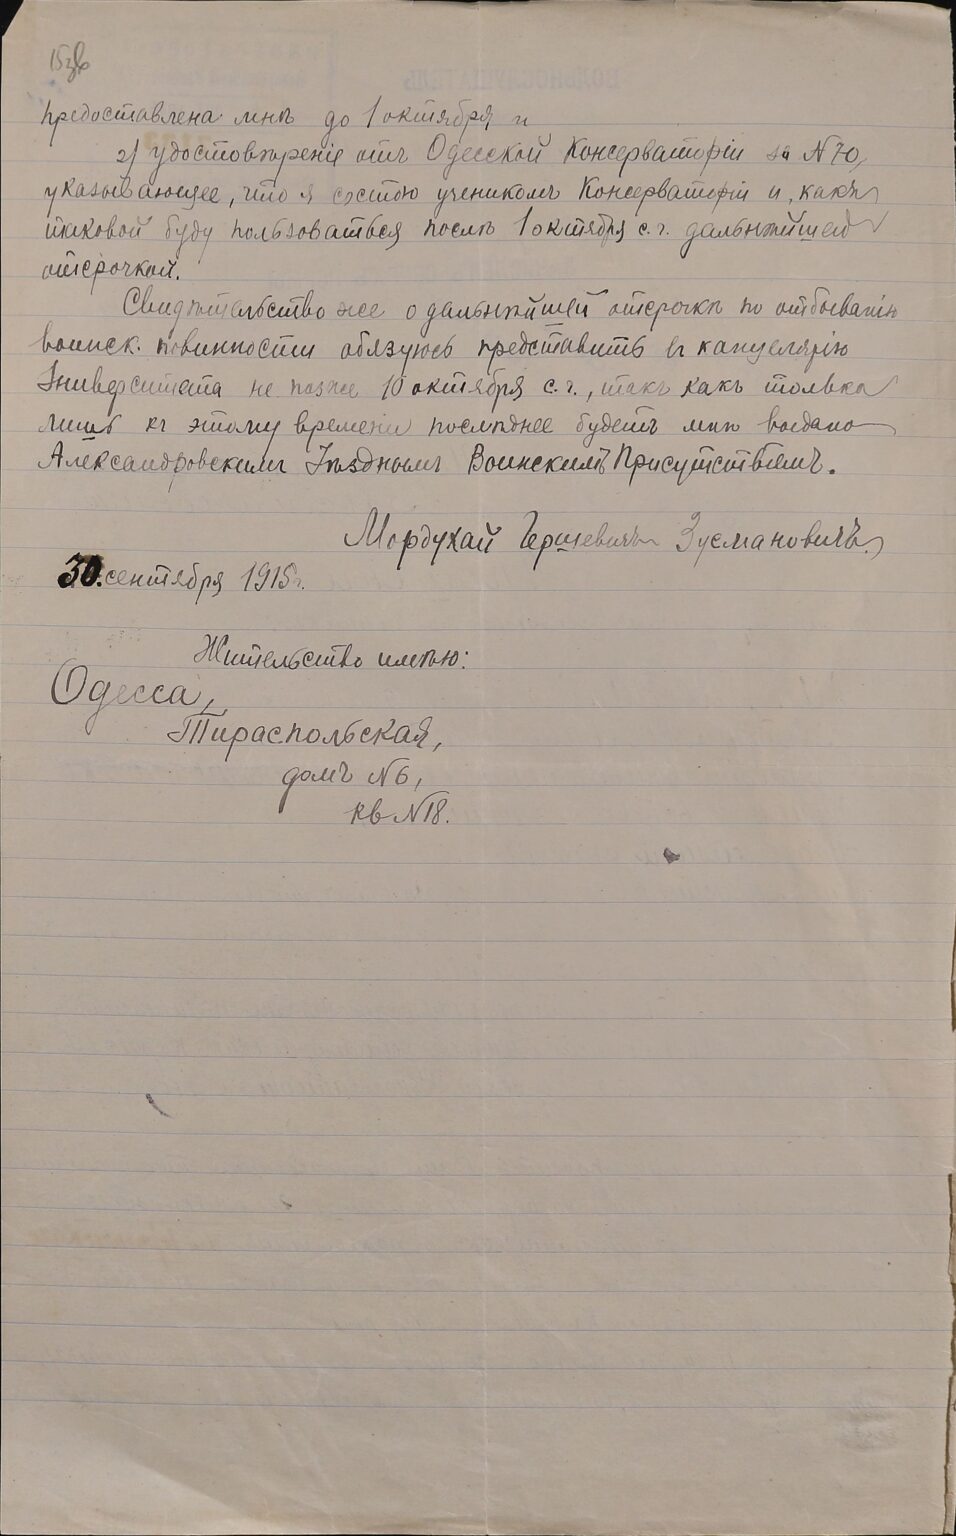 15 зв
предоставлена мнѣ до 1 октября и
2) удостовѣреніе отъ Одесской Консерваторіи за № 70,
указывающее, что я состою ученикомъ Консерваторіи и, какъ
таковой буду пользоваться послѣ 1 октября с. г. дальнѣйшей
отсрочкой.
Свидѣтельство же о дальнѣйшей отсрочкѣ по отбыванію
воинск. повинности обязуюсь представить въ канцелярію
Университета не позже 10 октября с. г., такъ какъ только
лишь къ этому времени послѣднее будетъ мнѣ выдано
Александровскимъ Уѣзднымъ Воинскимъ Присутствіемъ.
Мордухай Гершевичъ Зусмановичъ
30. сентября 1915 г.
Жительство имѣю:
Одесса,
Тираспольская,
домъ № 6,
кв № 18.